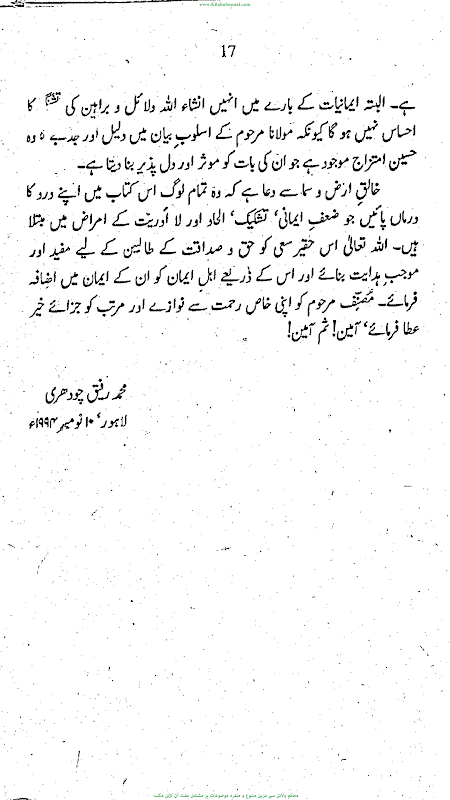 www.KitaboSunnat.com
17
ہے۔ البتہ ایمانیات کے بارے میں انہیں انشاء اللہ دلائل و براہین کی تشنگی کا
احساس نہیں ہو گا کیونکہ مولانا مرحوم کے اسلوبِ بیان میں دلیل اور جذبے کا وہ
حسین امتزاج موجود ہے جو ان کی بات کو موثر اور دل پذیر بنا دیتا ہے۔
خالقِ ارض و سما سے دعا ہے کہ وہ تمام لوگ اس کتاب میں اپنے درد کا
درماں پائیں جو ضعفِ ایمانی‘ تشکیک‘ الحاد اور لا ادریت کے امراض میں مبتلا
ہیں۔ اللہ تعالیٰ اس حقیر سعی کو حق و صداقت کے طالبین کے لیے مفید اور
موجبِ ہدایت بنائے اور اس کے ذریعے اہل ایمان کو ان کے ایمان میں اضافہ
فرمائے۔ مصنّف مرحوم کو اپنی خاص رحمت سے نوازے اور مرتب کو جزائے خیر
عطا فرمائے‘ آمین! ثم آمین!
محمد رفیق چودھری
لاہور‘ ۱۰ نومبر ۱۹۹۴ء
محکم دلائل سے مزین متنوع و منفرد موضوعات پر مشتمل مفت آن لائن مکتبہ